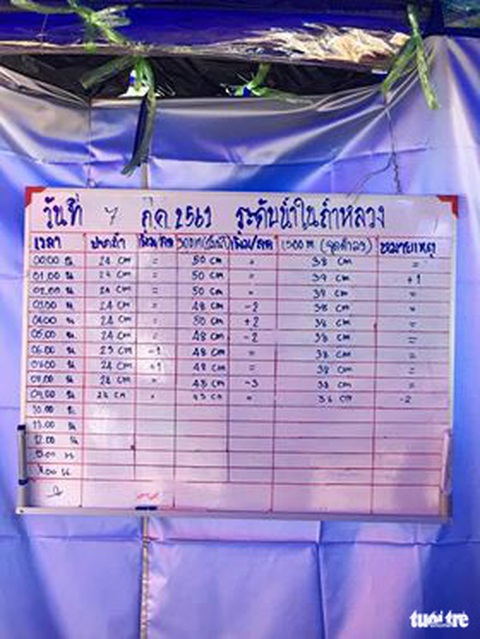 วันที่ 7 ก.ค. 2561 ระดับน้ำในถ้ำหลวง
เวลา ปากถ้ำ เพิ่ม/ลด เพิ่ม/ลด 1500 m หมายเหตุ
00.00 น 24 cm = 50 cm = 38 cm =
01.00 น 24 cm = 50 cm = 39 cm +1
02.00 น 24 cm = 50 cm = 39 cm =
03.00 น 24 cm = 48 cm -2 38 cm =
04.00 น 24 cm = 50 cm +2 38 cm =
05.00 น 24 cm = 48 cm -2 38 cm =
06.00 น 23 cm -1 48 cm = 38 cm =
07.00 น 24 cm +1 48 cm = 38 cm =
08.00 น 24 cm 45 cm -3 38 cm =
09.00 น 24 cm 45 cm 36 cm -2
10.00 น
11.00 น
12.00 น
tuoitre